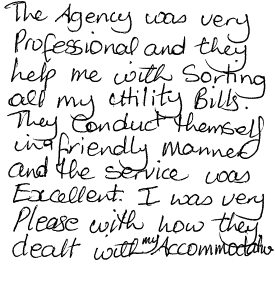 The Agency was very
Professional and they
help me with Sorting
all my utility Bills.
They Conduct themself
in a friendly manner
and the service was
Excellent. I was very
Please with how they
dealt with my Accommodation